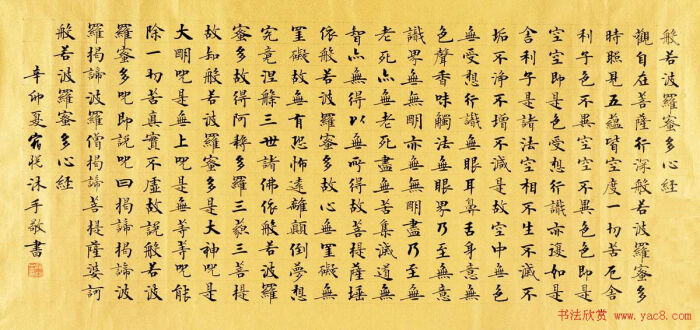 般若波羅蜜多心経
觀自在菩薩行深般若波羅蜜多
時照見五蘊皆空度一切苦厄舍
利子色不異空空不異色色即是
空空即是色受想行識亦復如是
舍利子是諸法空相不生不滅不
垢不淨不增不減是故空中無色
無受想行識無眼耳鼻舌身意無
色聲香味觸法無眼界乃至無意
識界無無明亦無無明盡乃至無
老死亦無老死盡無苦集滅道無
智亦無得以無所得故菩提薩埵
依般若波羅蜜多故心無罣礙無
罣礙故無有恐怖遠離顛倒夢想
究竟涅槃三世諸佛依般若波羅
蜜多故得阿耨多羅三藐三菩提
故知般若波羅蜜多是大神呪是
大明呪是無上呪是無等等呪能
除一切苦真實不虛故說般若波
羅蜜多呪即說呪曰揭諦揭諦波
羅揭諦波羅僧揭諦菩提薩婆訶
般若波羅蜜多心経
辛卯夏宿悦沐手敬書
书法欣赏
www.yac8.com